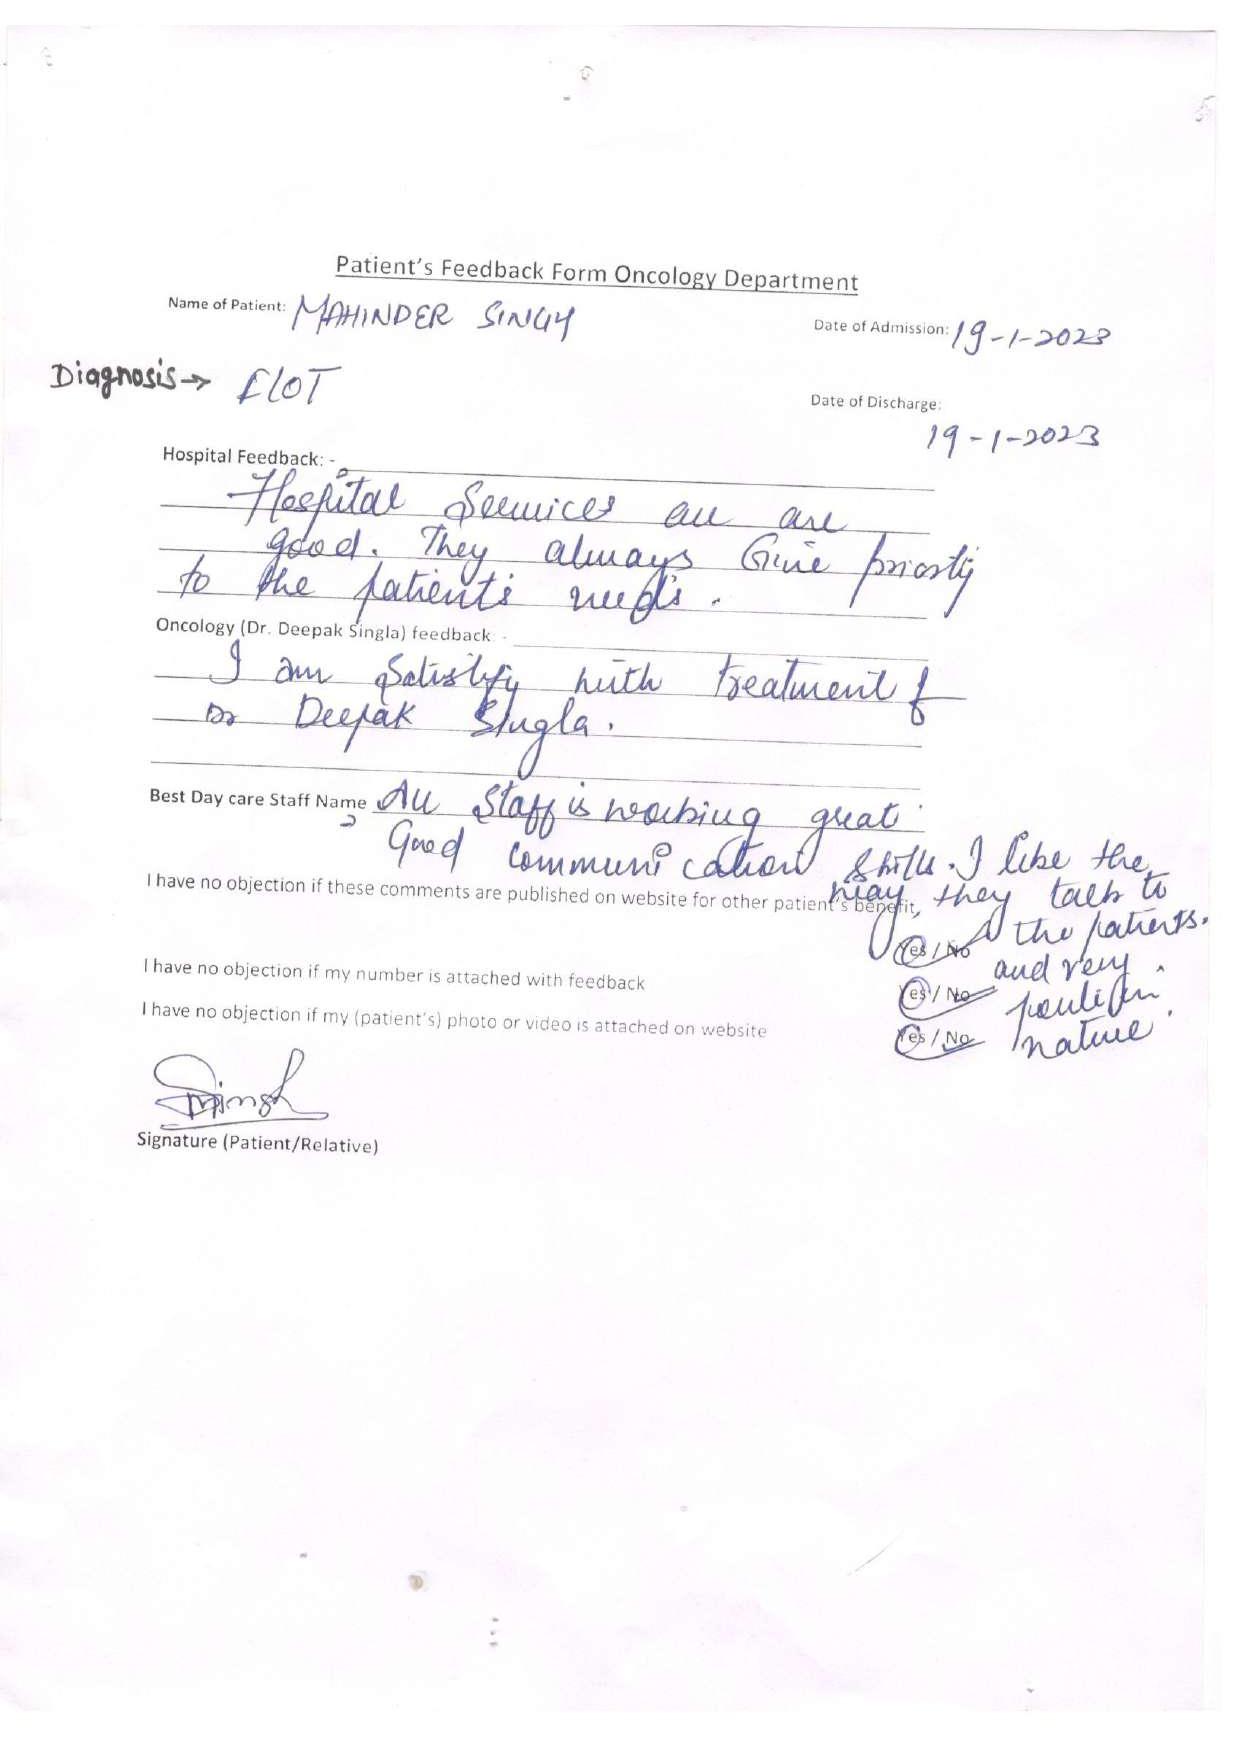 Patient's Feedback Form Oncology Department
Name of Patient: MAHINDER SINGH
Date of Admission: 19-1-2023
Diagnosis → FLOT
Date of Discharge:
19-1-2023
Hospital Feedback: -
Hospital Services all are
good. They always Give priority
to the patient's needs.
Oncology (Dr. Deepak Singla) feedback -
I am Satisfy with treatment of
Dr Deepak Singla.
Best Day care Staff Name All Staff is working great
Good communication skills. I like the
I have no objection if these comments are published on website for other patient's benefit,
way they talk to
the patients.
Yes / No
and very
I have no objection if my number is attached with feedback
Yes / No
in
I have no objection if my (patient's) photo or video is attached on website
Yes / No
nature.
Singh
Signature (Patient/Relative)